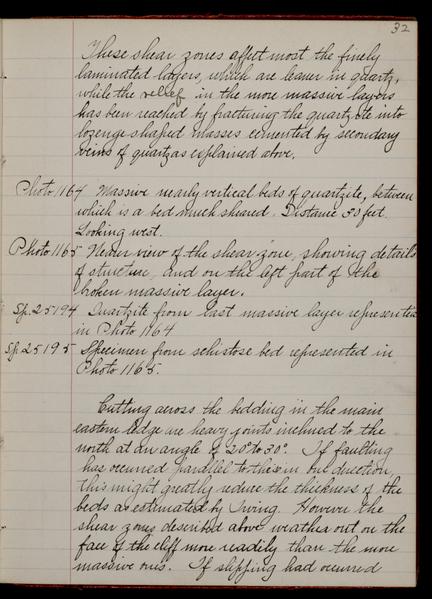 32
These shear zones affect most the finely
laminated layers, which are leaner in quartz,
while the relief in the more massive layers
has been reached by fracturing the quartzite into
lozenge shaped masses cemented by secondary
veins of quartz as explained above.
Photo 1164 Massive nearly vertical beds of quartzite, between
which is a bed much sheared. Distance 30 feet.
Looking west.
Photo 1165 Nearer view of the shear zone, showing details
of structure, and on the left part of the
broken massive layer.
Sp. 25194 Quartzite from last massive layer represented
in Photo 1164
Sp. 25195 Specimen from schistose bed represented in
Photo 1165.
Cutting across the bedding in the main
eastern ledge are heavy joints inclined to the
north at an angle of 20° to 30°. If faulting
has occurred parallel to these in one direction,
this might greatly reduce the thickness of the
beds as estimated by Irving. However the
shear zones described above weather out on the
face of the cliff more readily than the more
massive ones. If slipping had occurred